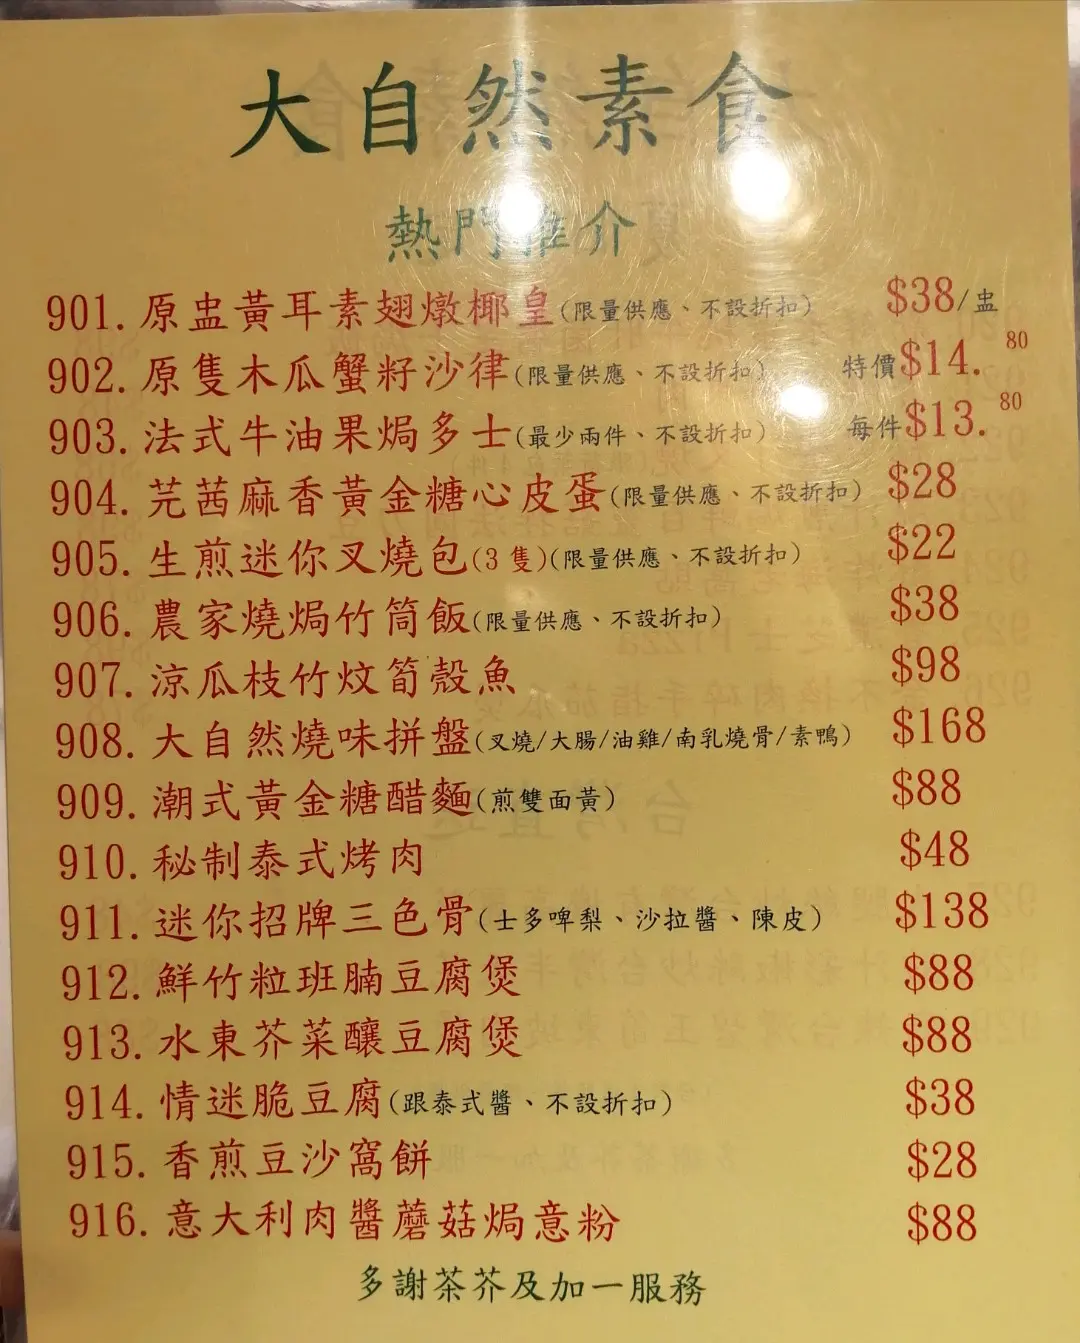 大自然素食
熱門推介
901. 原盅黃耳素翅燉椰皇(限量供應、不設折扣) $38/盅
902. 原隻木瓜蟹籽沙律(限量供應、不設折扣) 特價$14.80
903. 法式牛油果焗多士(最少兩件、不設折扣) 每件$13.80
904. 芫茜麻香黃金糖心皮蛋(限量供應、不設折扣) $28
905. 生煎迷你叉燒包(3隻)(限量供應、不設折扣) $22
906. 農家燒焗竹筒飯(限量供應、不設折扣) $38
907. 涼瓜枝竹炆筍殼魚 $98
908. 大自然燒味拼盤(叉燒/大腸/油雞/南乳燒骨/素鴨) $168
909. 潮式黃金糖醋麵(煎雙面黃) $88
910. 秘制泰式烤肉 $48
911. 迷你招牌三色骨(士多啤梨、沙拉醬、陳皮) $138
912. 鮮竹粒班腩豆腐煲 $88
913. 水東芥菜釀豆腐煲 $88
914. 情迷脆豆腐(跟泰式醬、不設折扣) $38
915. 香煎豆沙窩餅 $28
916. 意大利肉醬蘑菇焗意粉 $88
多謝茶芥及加一服務